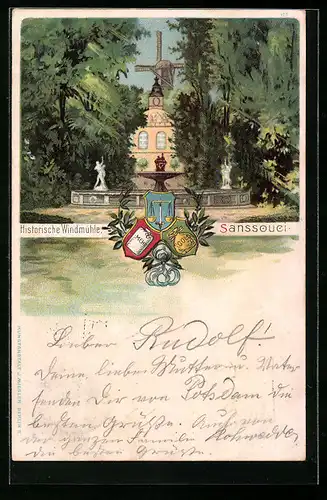 Historische Windmühle.
Sanssouci.
Lieber Rudolf!
Deine liebe Mutter u. Vater
senden Dir von Potsdam die
besten Grüße. Auch von
der ganzen Familie
die besten Grüße.